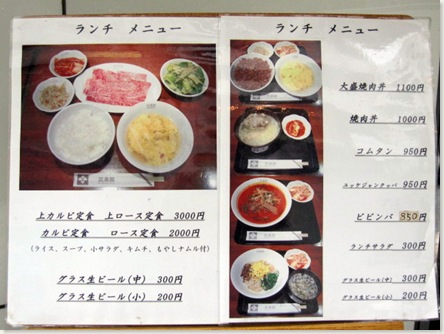 ランチ メニュー
上カルビ定食 上ロース定食 3000円
カルビ定食 ロース定食 2000円
(ライス、スープ、小サラダ、キムチ、もやしナムル付)
グラス生ビール(中) 300円
グラス生ビール(小) 200円
ランチ メニュー
大盛焼肉丼 1100円
焼肉丼 1000円
コムタン 950円
ユッケジャンクッパ 950円
ビビンバ 850円
ランチサラダ 300円
グラス生ビール(中) 300円
グラス生ビール(小) 200円